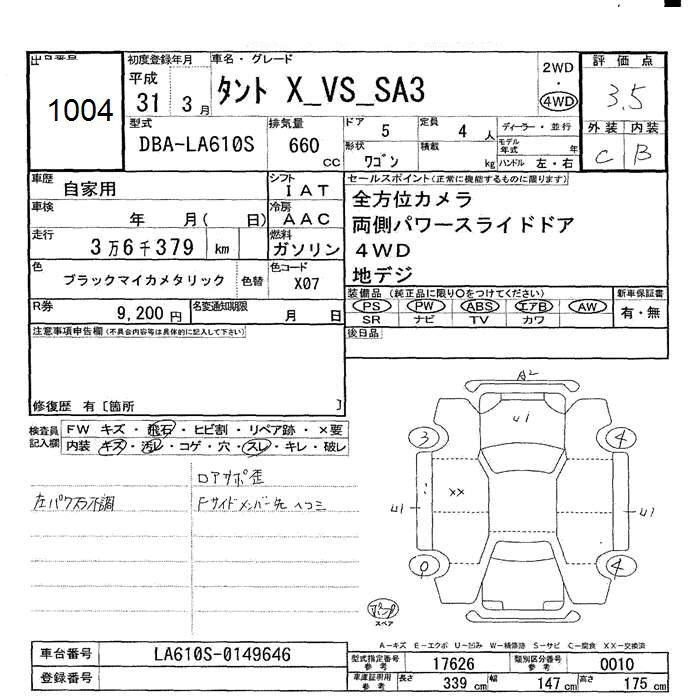 初度登録年月
車名・グレード
平成
31
3月
タント X_VS_SA3
2WD
・
4WD
評価点
3.5
1004
型式
DBA-LA610S
排気量
660
cc
ドア
5
定員
4
人
ディーラー・並行
モデル年式
年
外装
内装
C
B
形状
ワゴン
積載
kg
ハンドル
左・右
車歴
自家用
シフト
IAT
セールスポイント(正常に機能するものに限ります)
車検
年
月(
日)
冷房
AAC
全方位カメラ
両側パワースライドドア
4WD
地デジ
走行
3万6千379
km
燃料
ガソリン
色
ブラックマイカメタリック
色替
色コード
X07
装備品(純正品に限り○をつけてください)
新車保証書
R券
9,200円
名変通知期限
月
日
PS
PW
ABS
エアB
AW
有・無
SR
ナビ
TV
カワ
注意事項申告欄(不具合内容等は具体的に記入して下さい)
後日品
修復歴 有[箇所
]
検査員
記入欄
FW キズ・飛石・ヒビ割・リペア跡・×要
内装 キズ・汚レ・コゲ・穴・スレ・キレ・破レ
ロアサポ歪
左パワスラ不調
Fサイドメンバー先 ヘコミ
A2
U1
3
4
U1
XX
U1
4
スペア
A-キズ E-エクボ U-凹み W-補修跡 S-サビ C-腐食 XX-交換済
車台番号
LA610S-0149646
型式指定番号
参考
17626
類別区分番号
参考
0010
登録番号
車庫証明用
参考
長さ
339 cm
幅
147 cm
高さ
175 cm